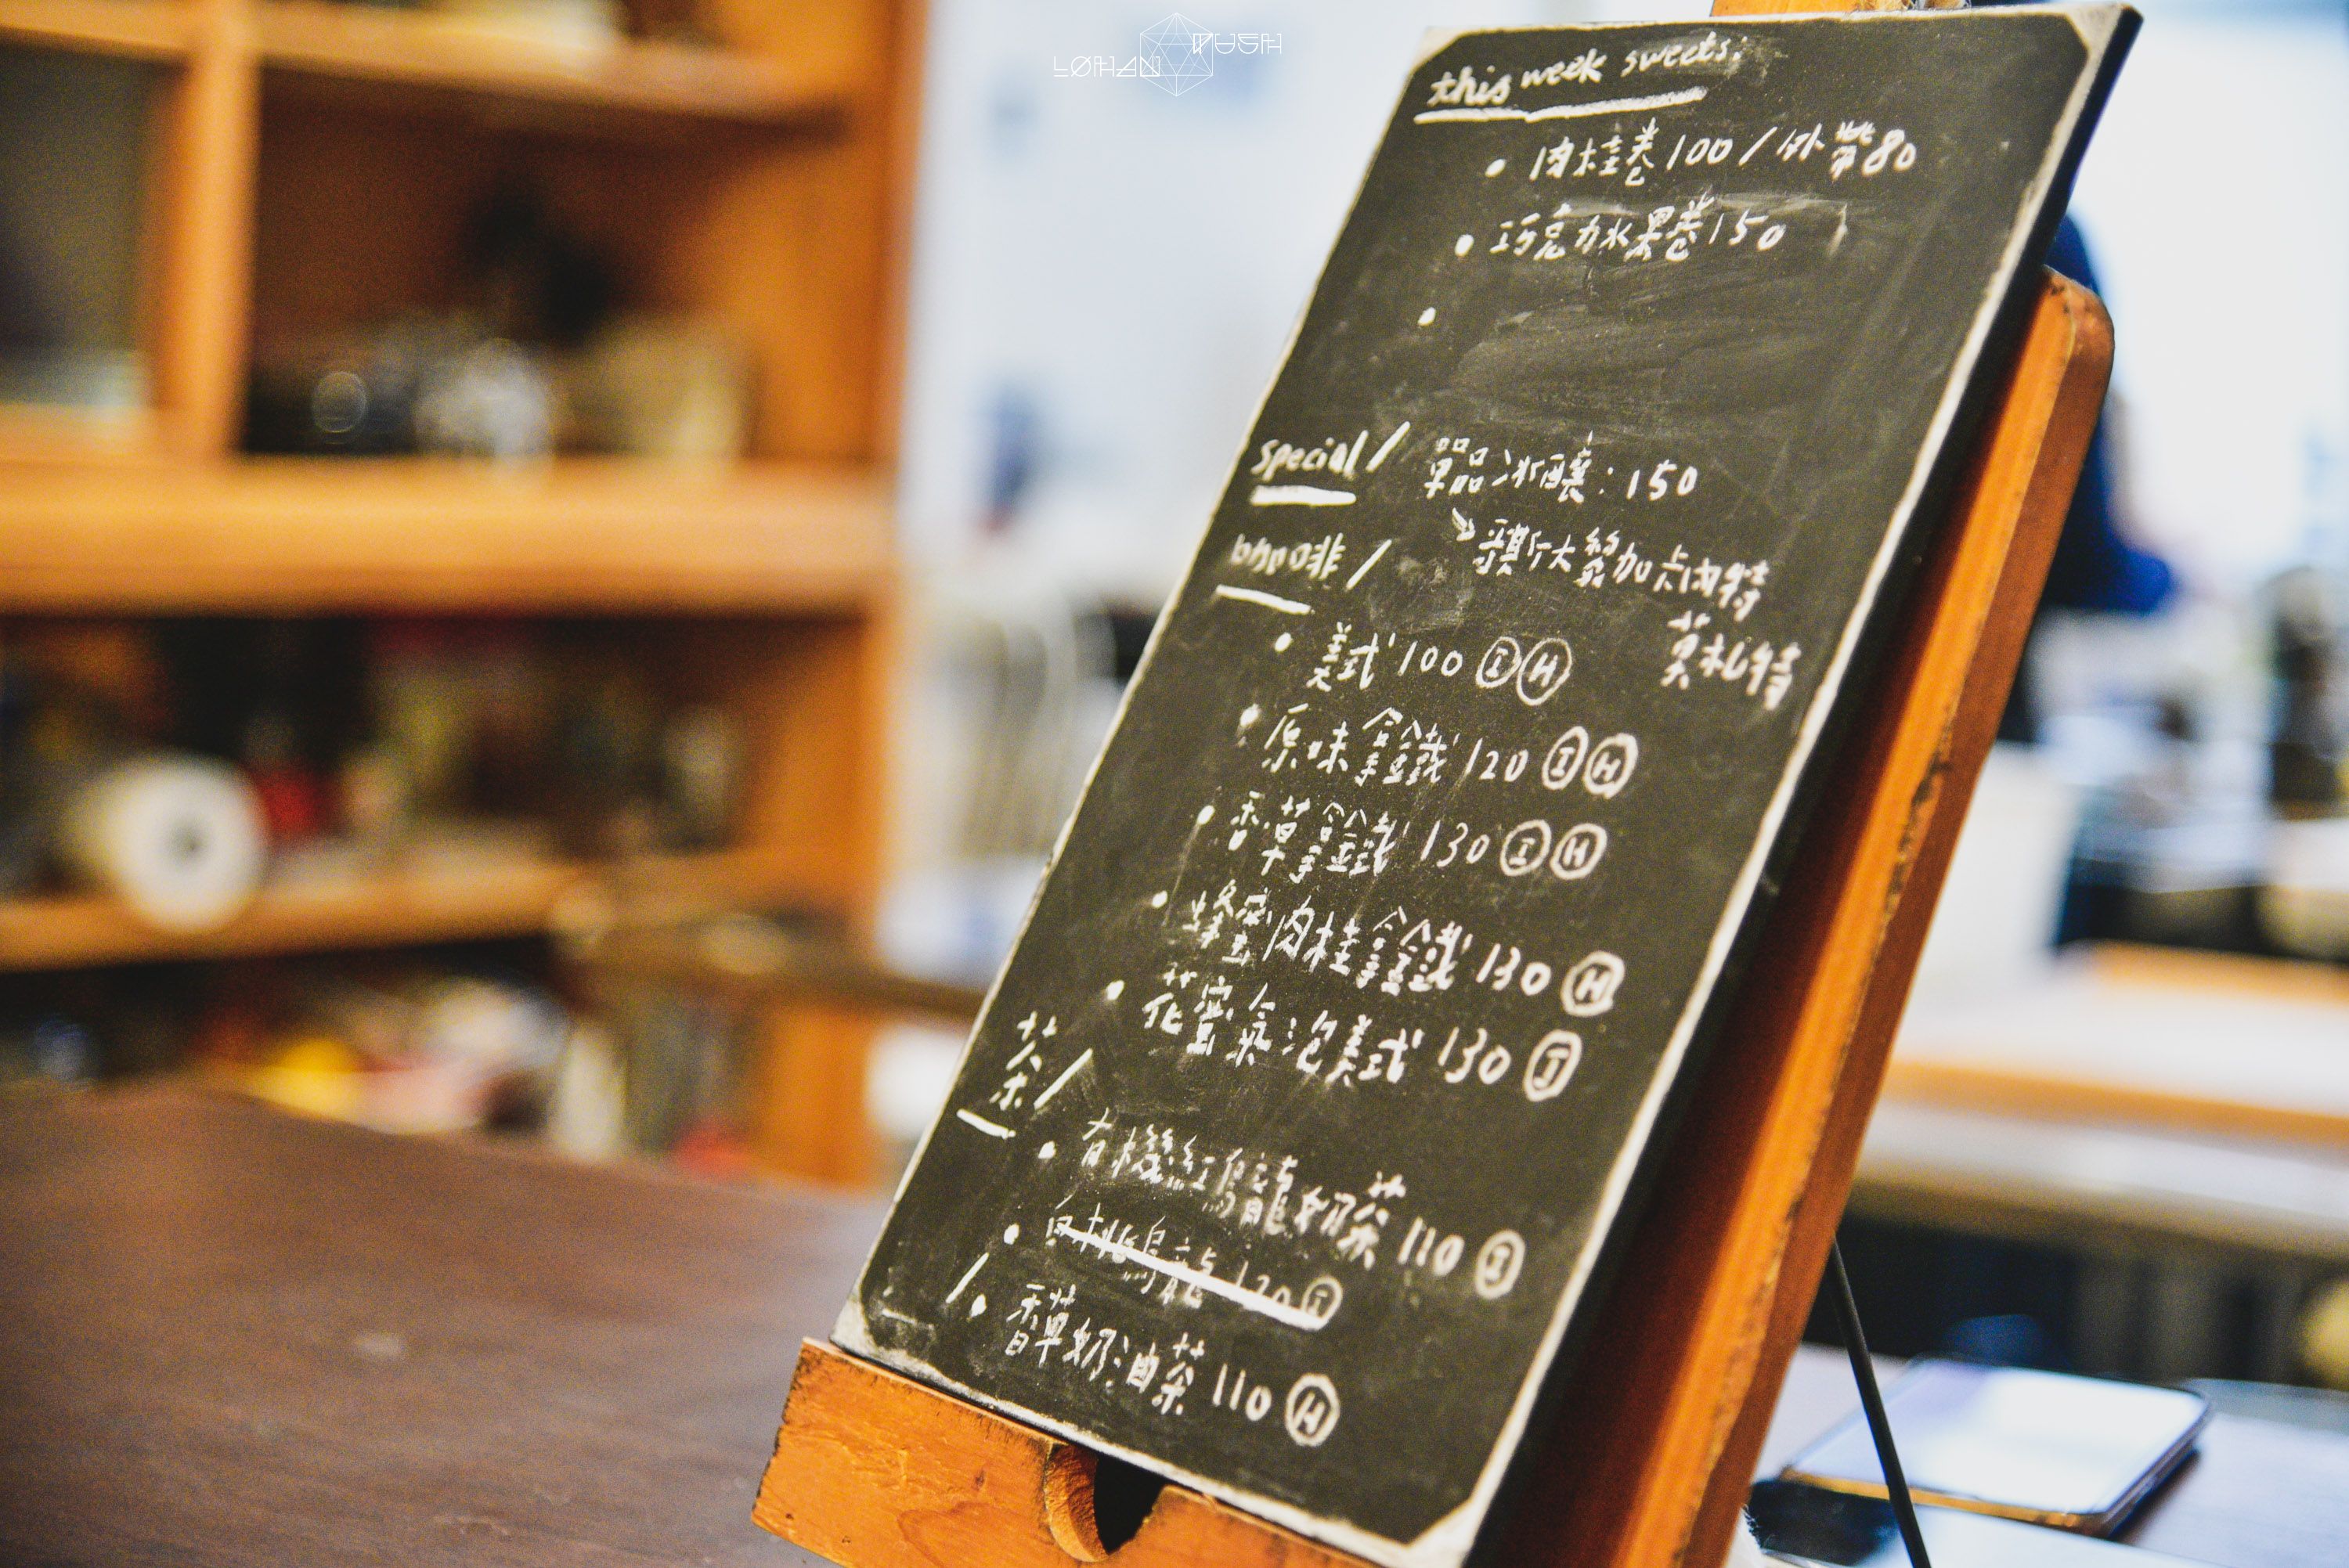 LOHAN TUSH
this week sweets:
• 肉桂卷 100 / 外帶 80
• 巧克力水果卷 150
•
special / 單品冰釀:150
↘ 衣索加卡內特
莫札特
咖啡 /
• 美式 100 Ⓘ Ⓗ
• 原味拿鐵 120 Ⓘ Ⓗ
• 香草拿鐵 130 Ⓘ Ⓗ
• 蜂蜜肉桂拿鐵 130 Ⓗ
• 花蜜氣泡美式 130 Ⓘ
茶 /
• 有機紅烏龍奶茶 110 Ⓘ
• 白桃烏龍 120 Ⓘ
• 香草奶油茶 110 Ⓗ